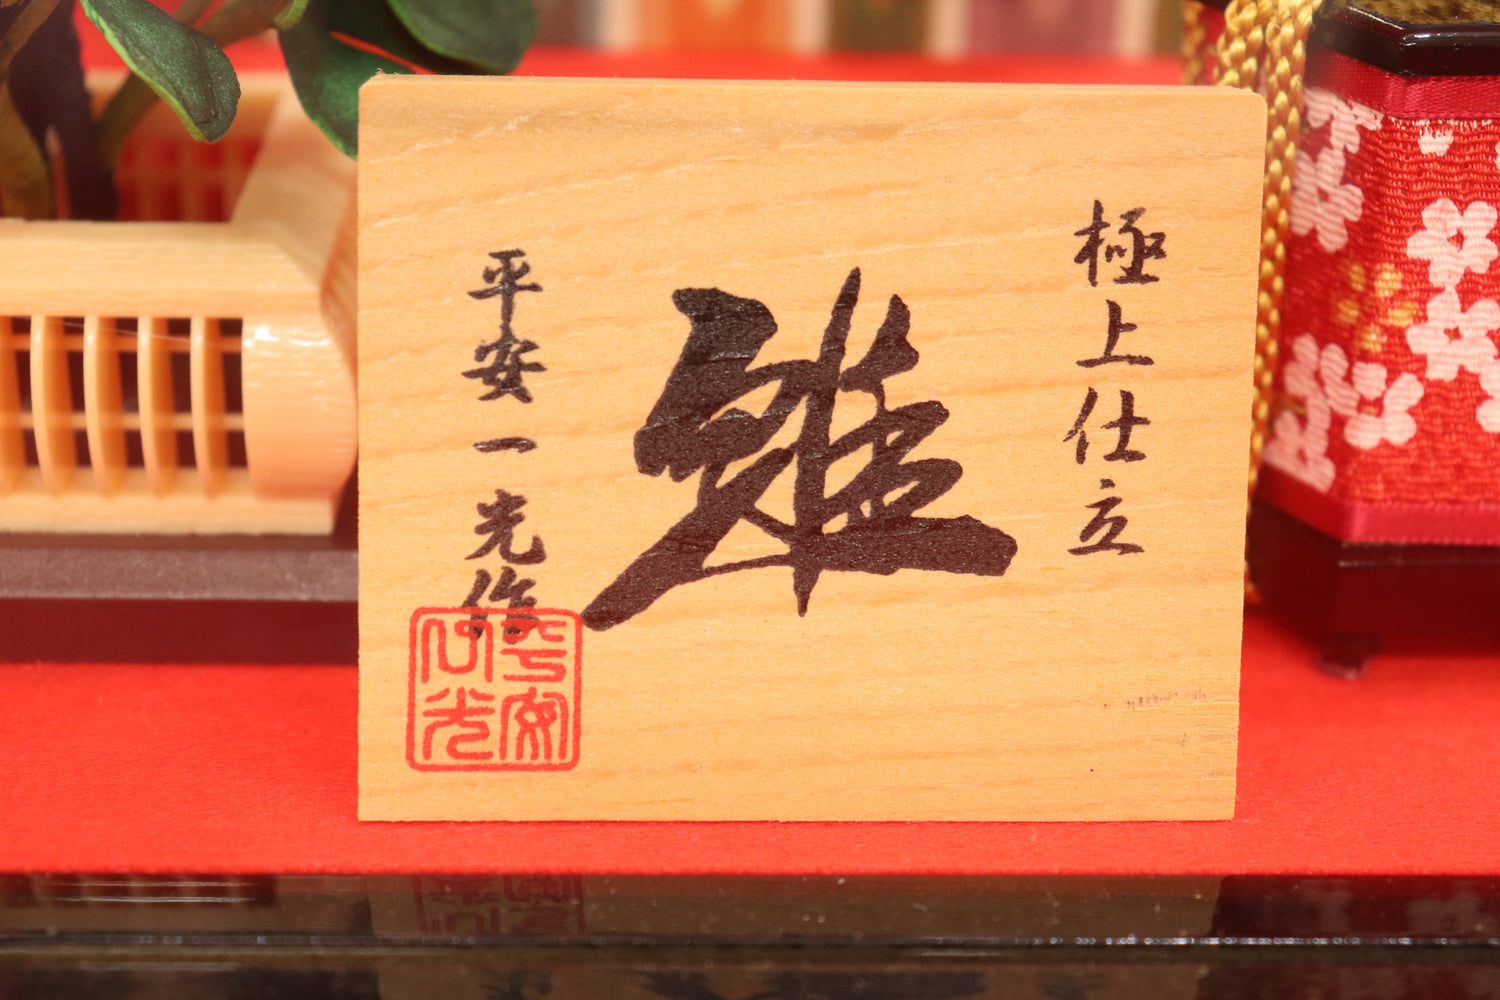 極上仕立
雛
平安一光作
平安